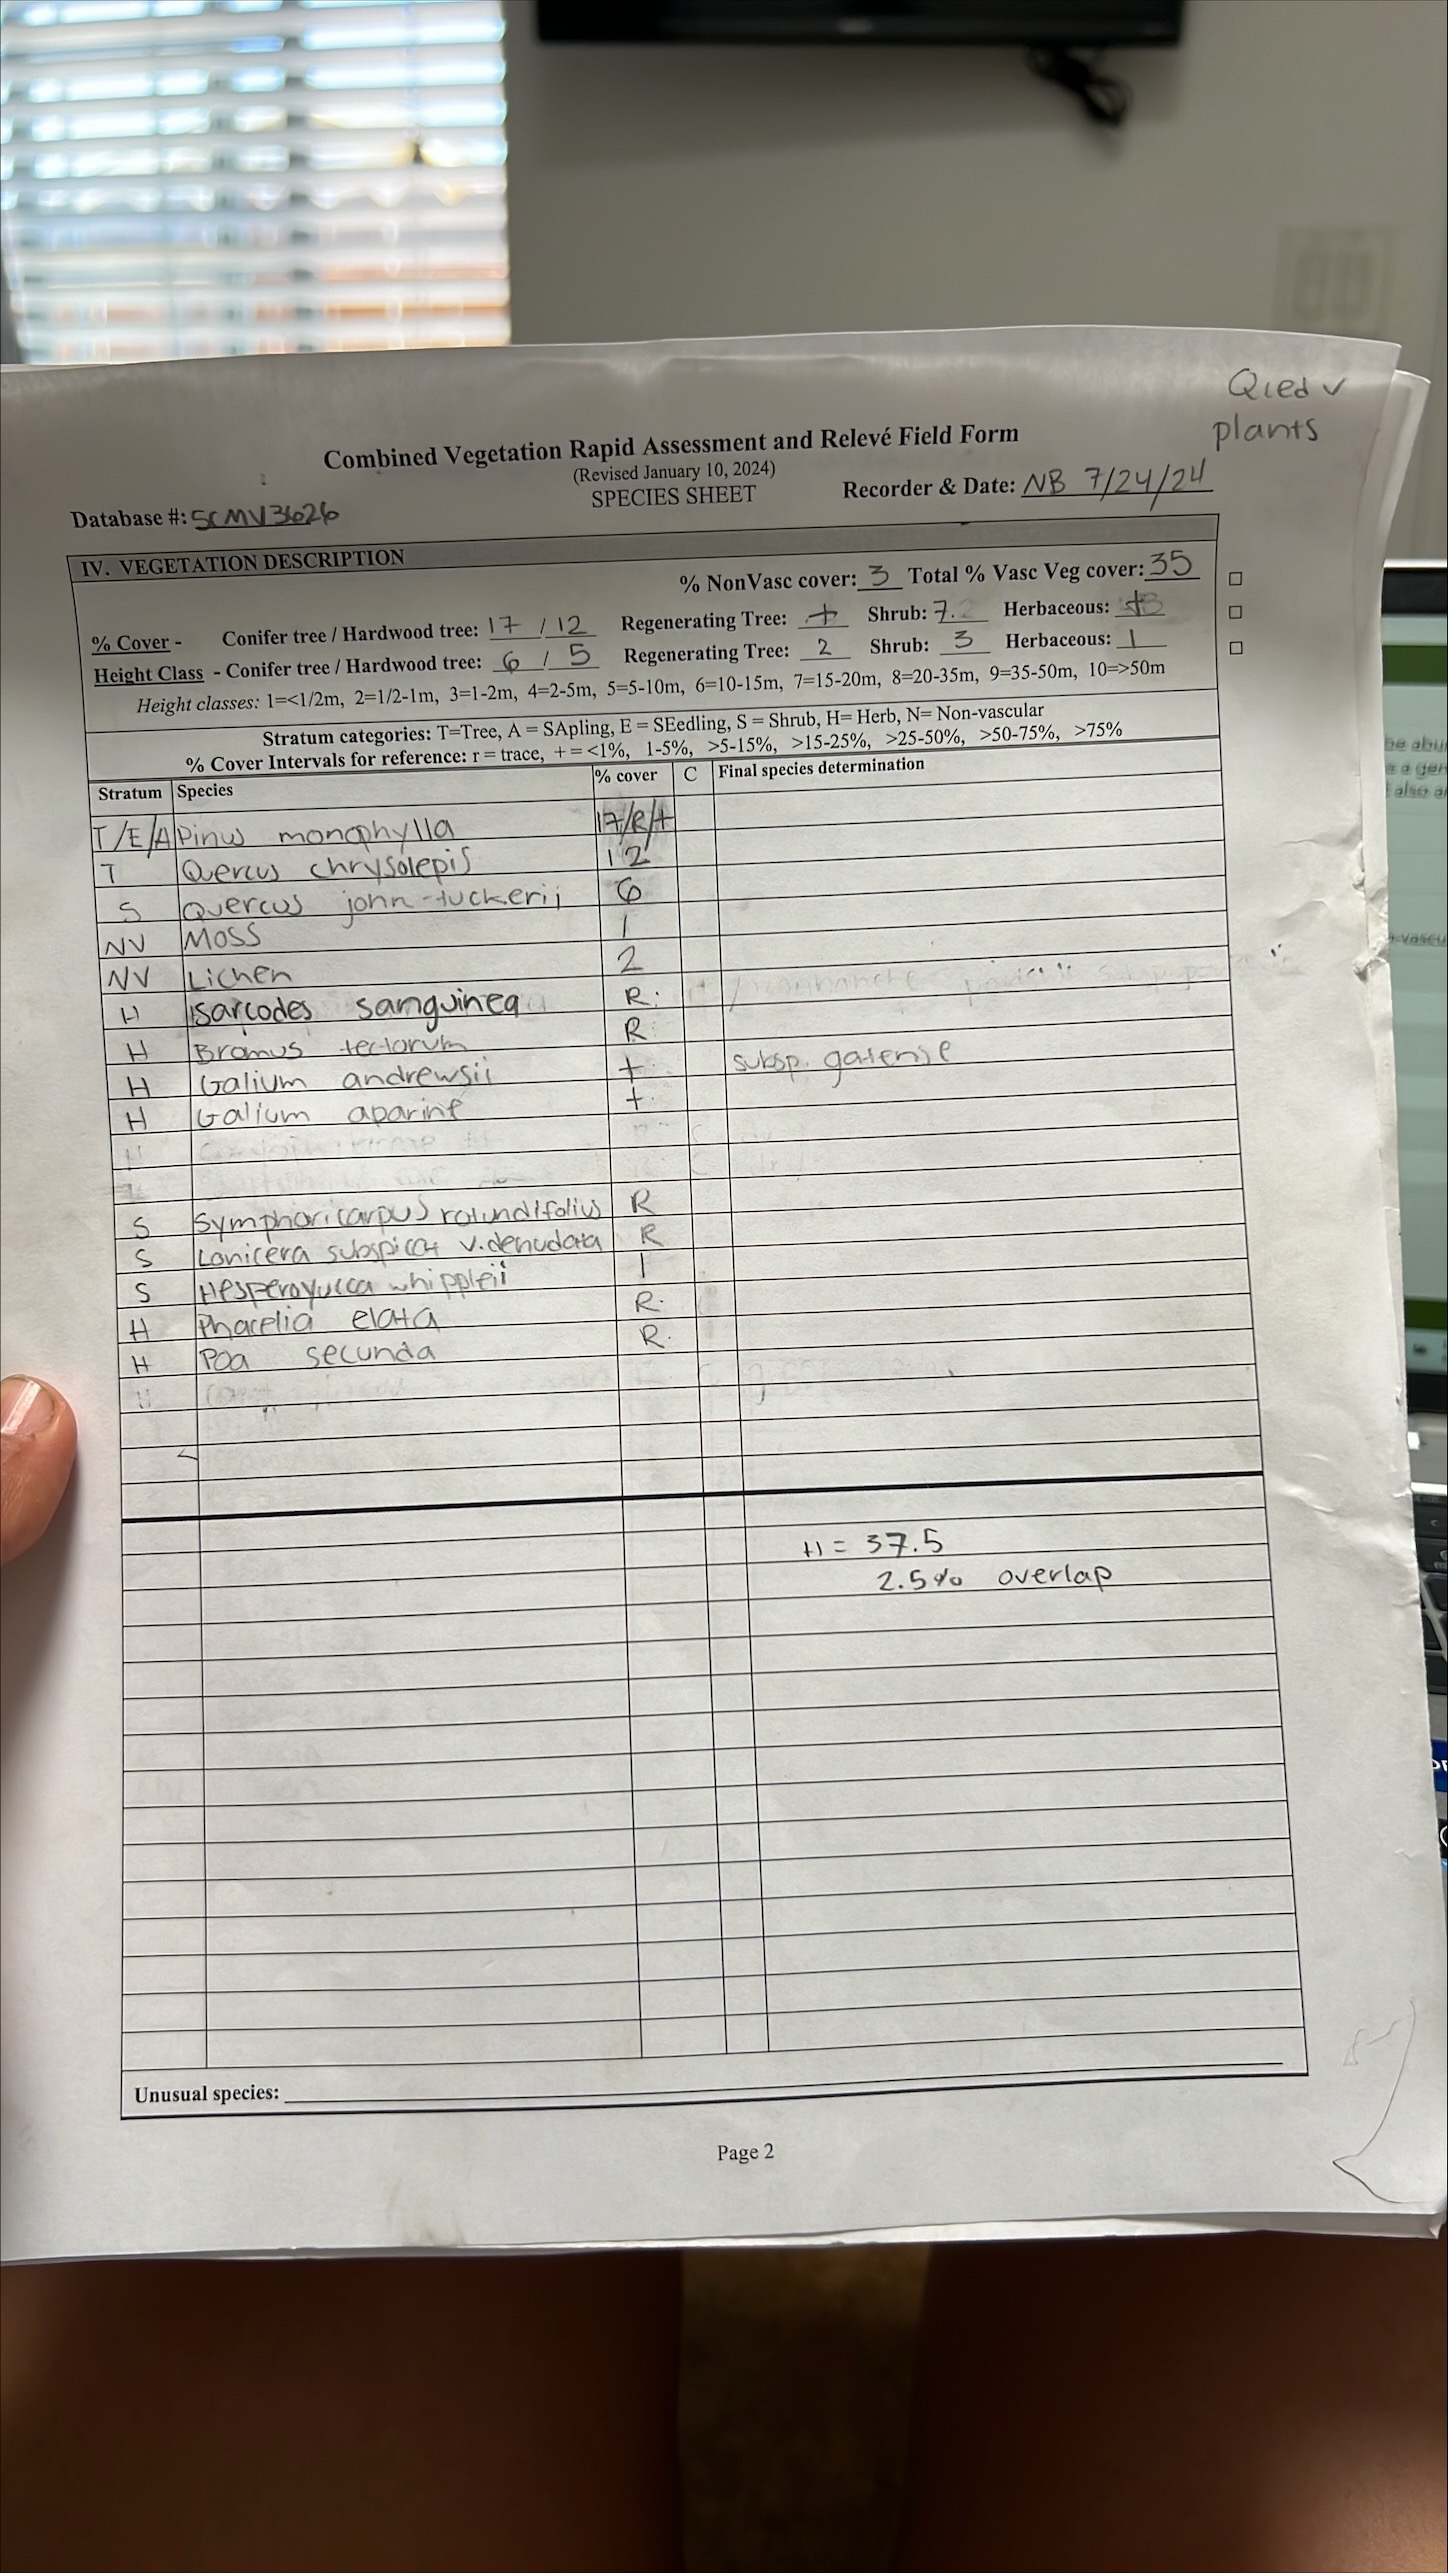 QCed ✓
plants
Combined Vegetation Rapid Assessment and Relevé Field Form
(Revised January 10, 2024)
SPECIES SHEET
Recorder & Date: NB 7/24/24
Database #: SCMV3626
IV. VEGETATION DESCRIPTION
% NonVasc cover: 3 Total % Vasc Veg cover: 35
% Cover - Conifer tree / Hardwood tree: 17 / 12 Regenerating Tree: + Shrub: 7. Herbaceous: +
Height Class - Conifer tree / Hardwood tree: 6 / 5 Regenerating Tree: 2 Shrub: 3 Herbaceous: 1
Height classes: 1=<1/2m, 2=1/2-1m, 3=1-2m, 4=2-5m, 5=5-10m, 6=10-15m, 7=15-20m, 8=20-35m, 9=35-50m, 10=>50m
Stratum categories: T=Tree, A = SApling, E = SEedling, S = Shrub, H= Herb, N= Non-vascular
% Cover Intervals for reference: r = trace, + = <1%, 1-5%, >5-15%, >15-25%, >25-50%, >50-75%, >75%
Stratum Species % cover C Final species determination
T/E/A Pinus monophylla 17/R/+
T Quercus chrysolepis 12
S Quercus john-tuckerii 6
NV Moss 1
NV Lichen 2
H Sarcodes sanguinea R
H Bromus tectorum R
H Galium andrewsii + subsp. gatense
H Galium aparine +
H
S Symphoricarpus rotundifolius R
S Lonicera subspicat v. denudata R
S Hesperoyucca whippleii 1
H Phacelia elata R
H Poa secunda R
H = 37.5
2.5% overlap
Unusual species:
Page 2